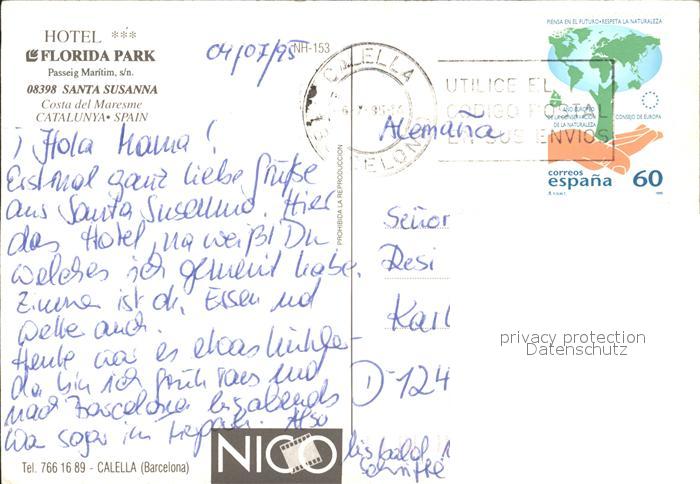 HOTEL ***
FLORIDA PARK
Passeig Marítim, s/n.
08398 SANTA SUSANNA
Costa del Maresme
CATALUNYA • SPAIN
04/07/95
NH-153
¡Hola Mama!
Erstmal ganz liebe Grüße
aus Santa Susanna. Hier
das Hotel, na weißt Du
welches ich gemeint habe.
Zimmer ist ok, Essen und
Wetter auch.
Heute war es etwas kühler
da bin ich früh raus und
nach Barcelona bis abends
War sogar im Also
bis bald
Tel. 766 16 89 - CALELLA (Barcelona)
NICO
PROHIBIDA LA REPRODUCCIÓN
CALELLA
BARCELONA
UTILICE EL
CODIGO POSTAL
EN SUS ENVIOS
PIENSA EN EL FUTURO • RESPETA LA NATURALEZA
AÑO EUROPEO
DE LA CONSERVACION
DE LA NATURALEZA
CONSEJO DE EUROPA
correos
españa 60
Alemaña
Señor
Desi
Karl
D-124
privacy protection
Datenschutz